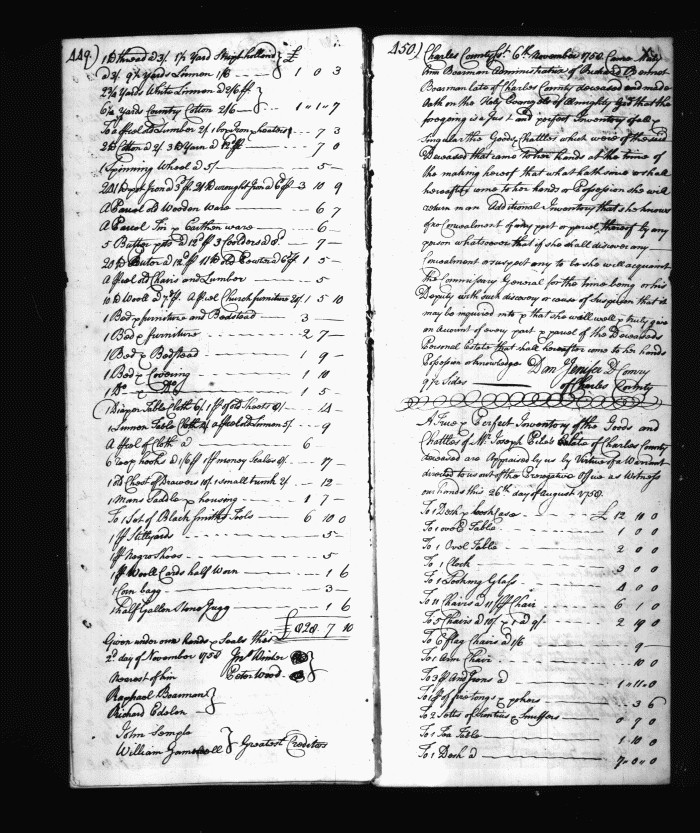 449)
1 lb thread a 3/. 1 1/2 Yard Sheep holland £
a 2/. 9 1/2 Yards Linnen 1/6 1 0 3
2 3/4 Yards White Linnen a 2/6
6 1/4 Yards Country Cotton 2/6 1 " 1 " 7
To a parcel old Lumber 2/. 1 box Iron heaters 7 3
2 lb Cotton a 2/. 3 lb Yarn a 7 0
1 Spinning Wheel a 5/ 5
201 lb pot Iron a 3d 21 lb wrought Iron a 6d 3 10 9
A Parcel old Wooden Ware 6 7
A Parcel Tin & Earthen ware 6
5 Butter pots a 3 7
20 lb Pewter a 12d 11 lb old Pewter a 6d 1 5
A Parcel old Chairs and Lumber 5
10 lb Wooll a 7d A Parcel Church furniture 20/. 1 5 10
1 Bed & furniture and Bedstead 3
1 Bed & furniture 2 7
1 Bed & Bedstead 1 9
1 Bed & Covering 1 10
1 Do & Do 1 5
1 Diaper Table Cloth 6/. 1 pr of old Sheets 8/. 14
1 Linnen Table Cloth 4/. a parcel old Linnen 5/. 9
A parcel of Cloth a 6
6 reap hooks a 1/6 1 pr money Scales 8/. 17
1 old Chest of Drawers 10/. 1 small trunk 2/. 12
1 Mans Saddle & housing 1 7
To 1 Set of Black Smiths Tools 6 10 0
1 pr Stillyards 5
1 pr Negro Shoes 5
1 pr Wooll Cards half Worn 1 6
1 Corn bagg 3
1 half Gallon Stone Jugg 1 6
£ 828 7 10
Given under our hands & Seals this
2d. day of November 1750 Jno Winter
Nearest of kin Peter Wood
Raphael Boarman
Richard Edelen
John Semple
William Greatest Creditors
450)
Charles County Sct. 6th November 1750. Came Mary
Ann Boarman Administratrix of Richard Bennet
Boarman late of Charles County deceased and made
Oath on the Holy Evangels of Almighty God that the
foregoing is a Just and perfect Inventory of all &
Singular the Goods Chattles which were of the said
Deceased that came to her hands at the time of
the making hereof that what hath since or shall
hereafter come to her hands or Possession she will
return in an Additional Inventory that she knows
of no Concealment of any part or parcel thereof by any
person whatsoever that if she shall discover any
Concealment or suspect any to be she will acquaint
the Commissary General for the time being or his
Deputy with such discovery or cause of Suspicion that it
may be inquired into & that she will well & truly give
an Account of every part & parcel of the Deceaseds
Personal Estate that shall hereafter come to her hands
Possession or knowledge Dan Jenifer D Comry
9 1/2 Sides of Charles County
A True & Perfect Inventory of the Goods and
Chattles of Mr. Joseph Estate of Charles County
deceased are Appraised by us by Virtue of a Warrant
directed to us out of the Prerogative Office as Witness
our hands this 26th day of August 1750.
To 1 Desk & bookcase £ 12 10 0
To 1 oval Table 1 0 0
To 1 Oval Table 2 0 0
To 1 Clock 3 0 0
To 1 Looking Glass 4 0 0
To 11 Chairs a 11/ pr Chair 6 1 0
To 5 Chairs a 10/ 2 10 0
To 6 flag Chairs a 1/6 9
To 1 Arm Chair 10 0
To 3 pr And Irons a 1 " 11 " 0
To 1 pr of fire tongs & 3 6
To 2 Setts of & Snuffers 0 9 0
To 1 Tea Table 1 10 0
To 1 Desk a 7 " 0 " 0